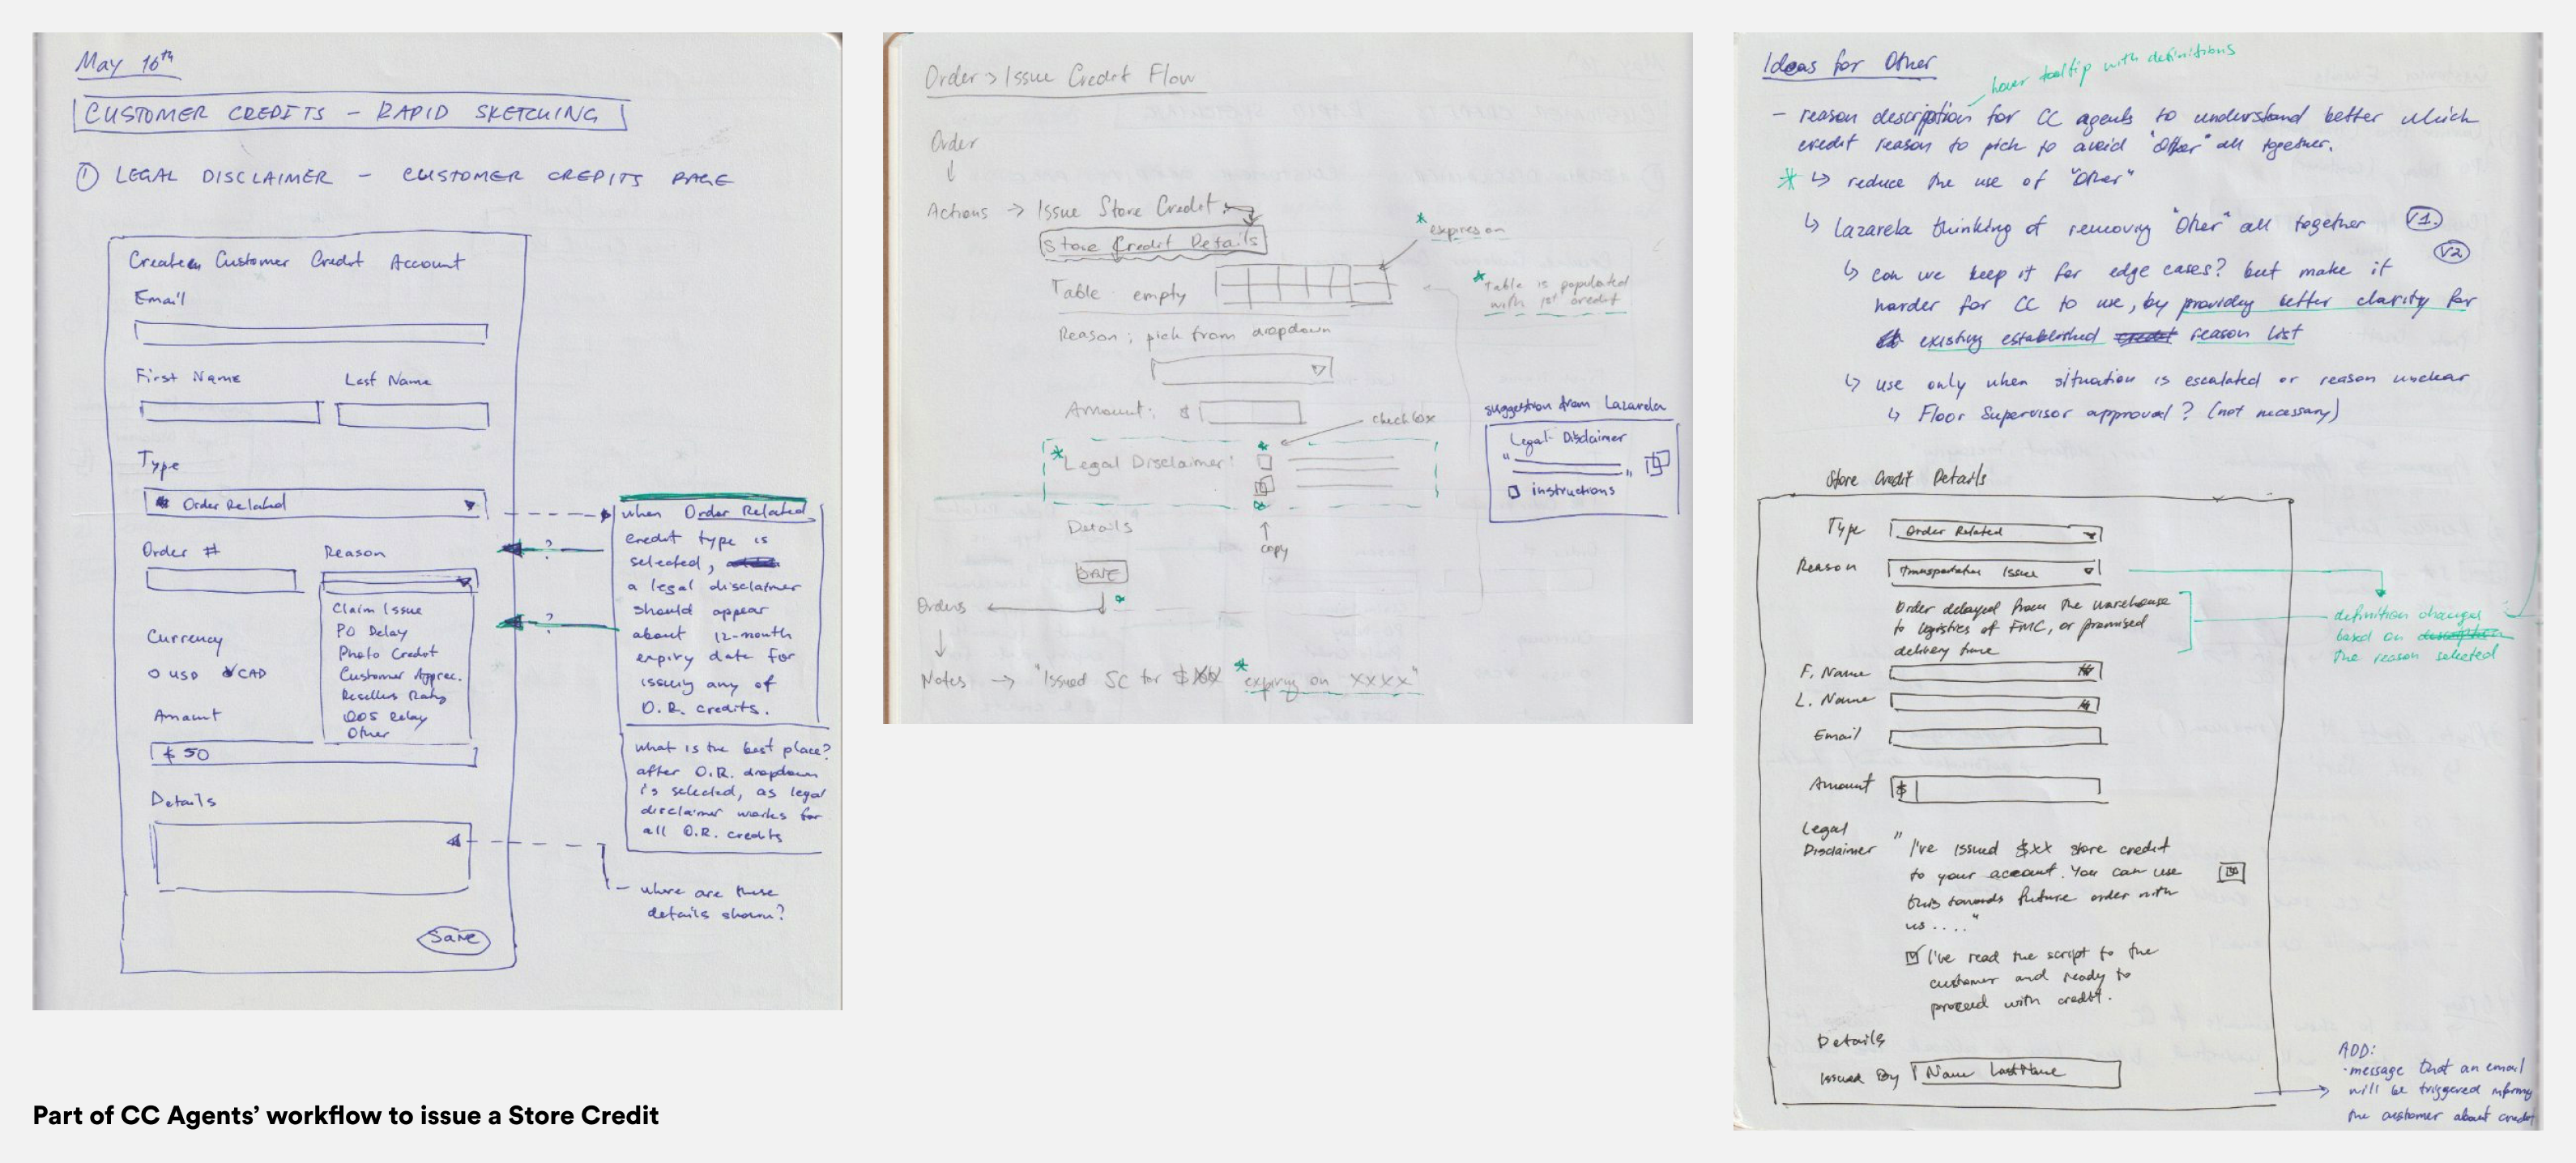 May 16th
CUSTOMER CREDITS - RAPID SKETCHING
① LEGAL DISCLAIMER - CUSTOMER CREDITS PAGE
Create Customer Credit Account
Email
First Name
Last Name
Type
Order Related
Order #
Reason
Claim Issue
PO Delay
Photo Credit
Customer Apprec.
Resellers
OOS Delay
Other
Currency
USD CAD
Amount
$ 50
Details
Save
when Order Related
credit type is
selected,
a legal disclaimer
should appear
about 12-month
expiry date for
issuing any of
O.R. credits.
?
?
what is the best place?
after O.R. dropdown
is selected, as legal
disclaimer works for
all O.R. credits
where are these
details shown?
Order > Issue Credit Flow
Order
Actions → Issue Store Credit
Store Credit Details
* expires on
Table empty
* Table is populated
with 1st credit
Reason: pick from dropdown
Amount: $
checkbox
* Legal Disclaimer:
suggestion from Lazarela
Legal Disclaimer
" "
instructions
Details
copy
SAVE
Orders
Notes → "Issued SC for $XX * expiring on XXXX"
Ideas for Other
hover tooltip with definitions
- reason description for CC agents to understand better which
credit reason to pick to avoid "Other" all together.
* ↳ reduce the use of "Other"
↳ Lazarela thinking of removing "Other" all together V1.
V2
↳ can we keep it for edge cases? but make it
harder for CC to use, by providing better clarity for
existing established credit reason list
↳ use only when situation is escalated or reason unclear
↳ Floor Supervisor approval? (not necessary)
Store Credit Details
Type Order Related
Reason Transportation Issue
Order delayed from the warehouse
to logistics of FMC, or promised
delivery time
definition changes
based on description
the reason selected
F. Name
L. Name
Email
Amount $
Legal
Disclaimer
" I've issued $xx store credit
to your account. You can use
this towards future order with
us .... "
I've read the script to the
customer and ready to
proceed with credit.
Details
Issued By Name LastName
ADD:
- message that an email
will be triggered informing
the customer about credit
Part of CC Agents' workflow to issue a Store Credit